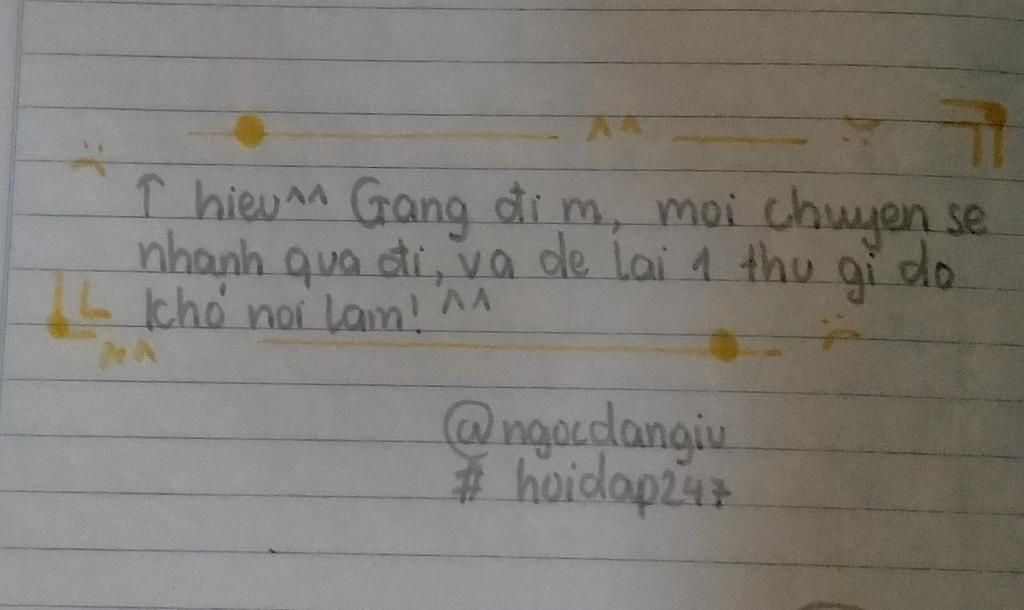 ^^
T hieu^^ Gang đi m, moi chuyen se
nhanh qua đi, va de lai 1 thu gi do
khó noi lam! ^^
^^
@ngocdangiu
# hoidap247